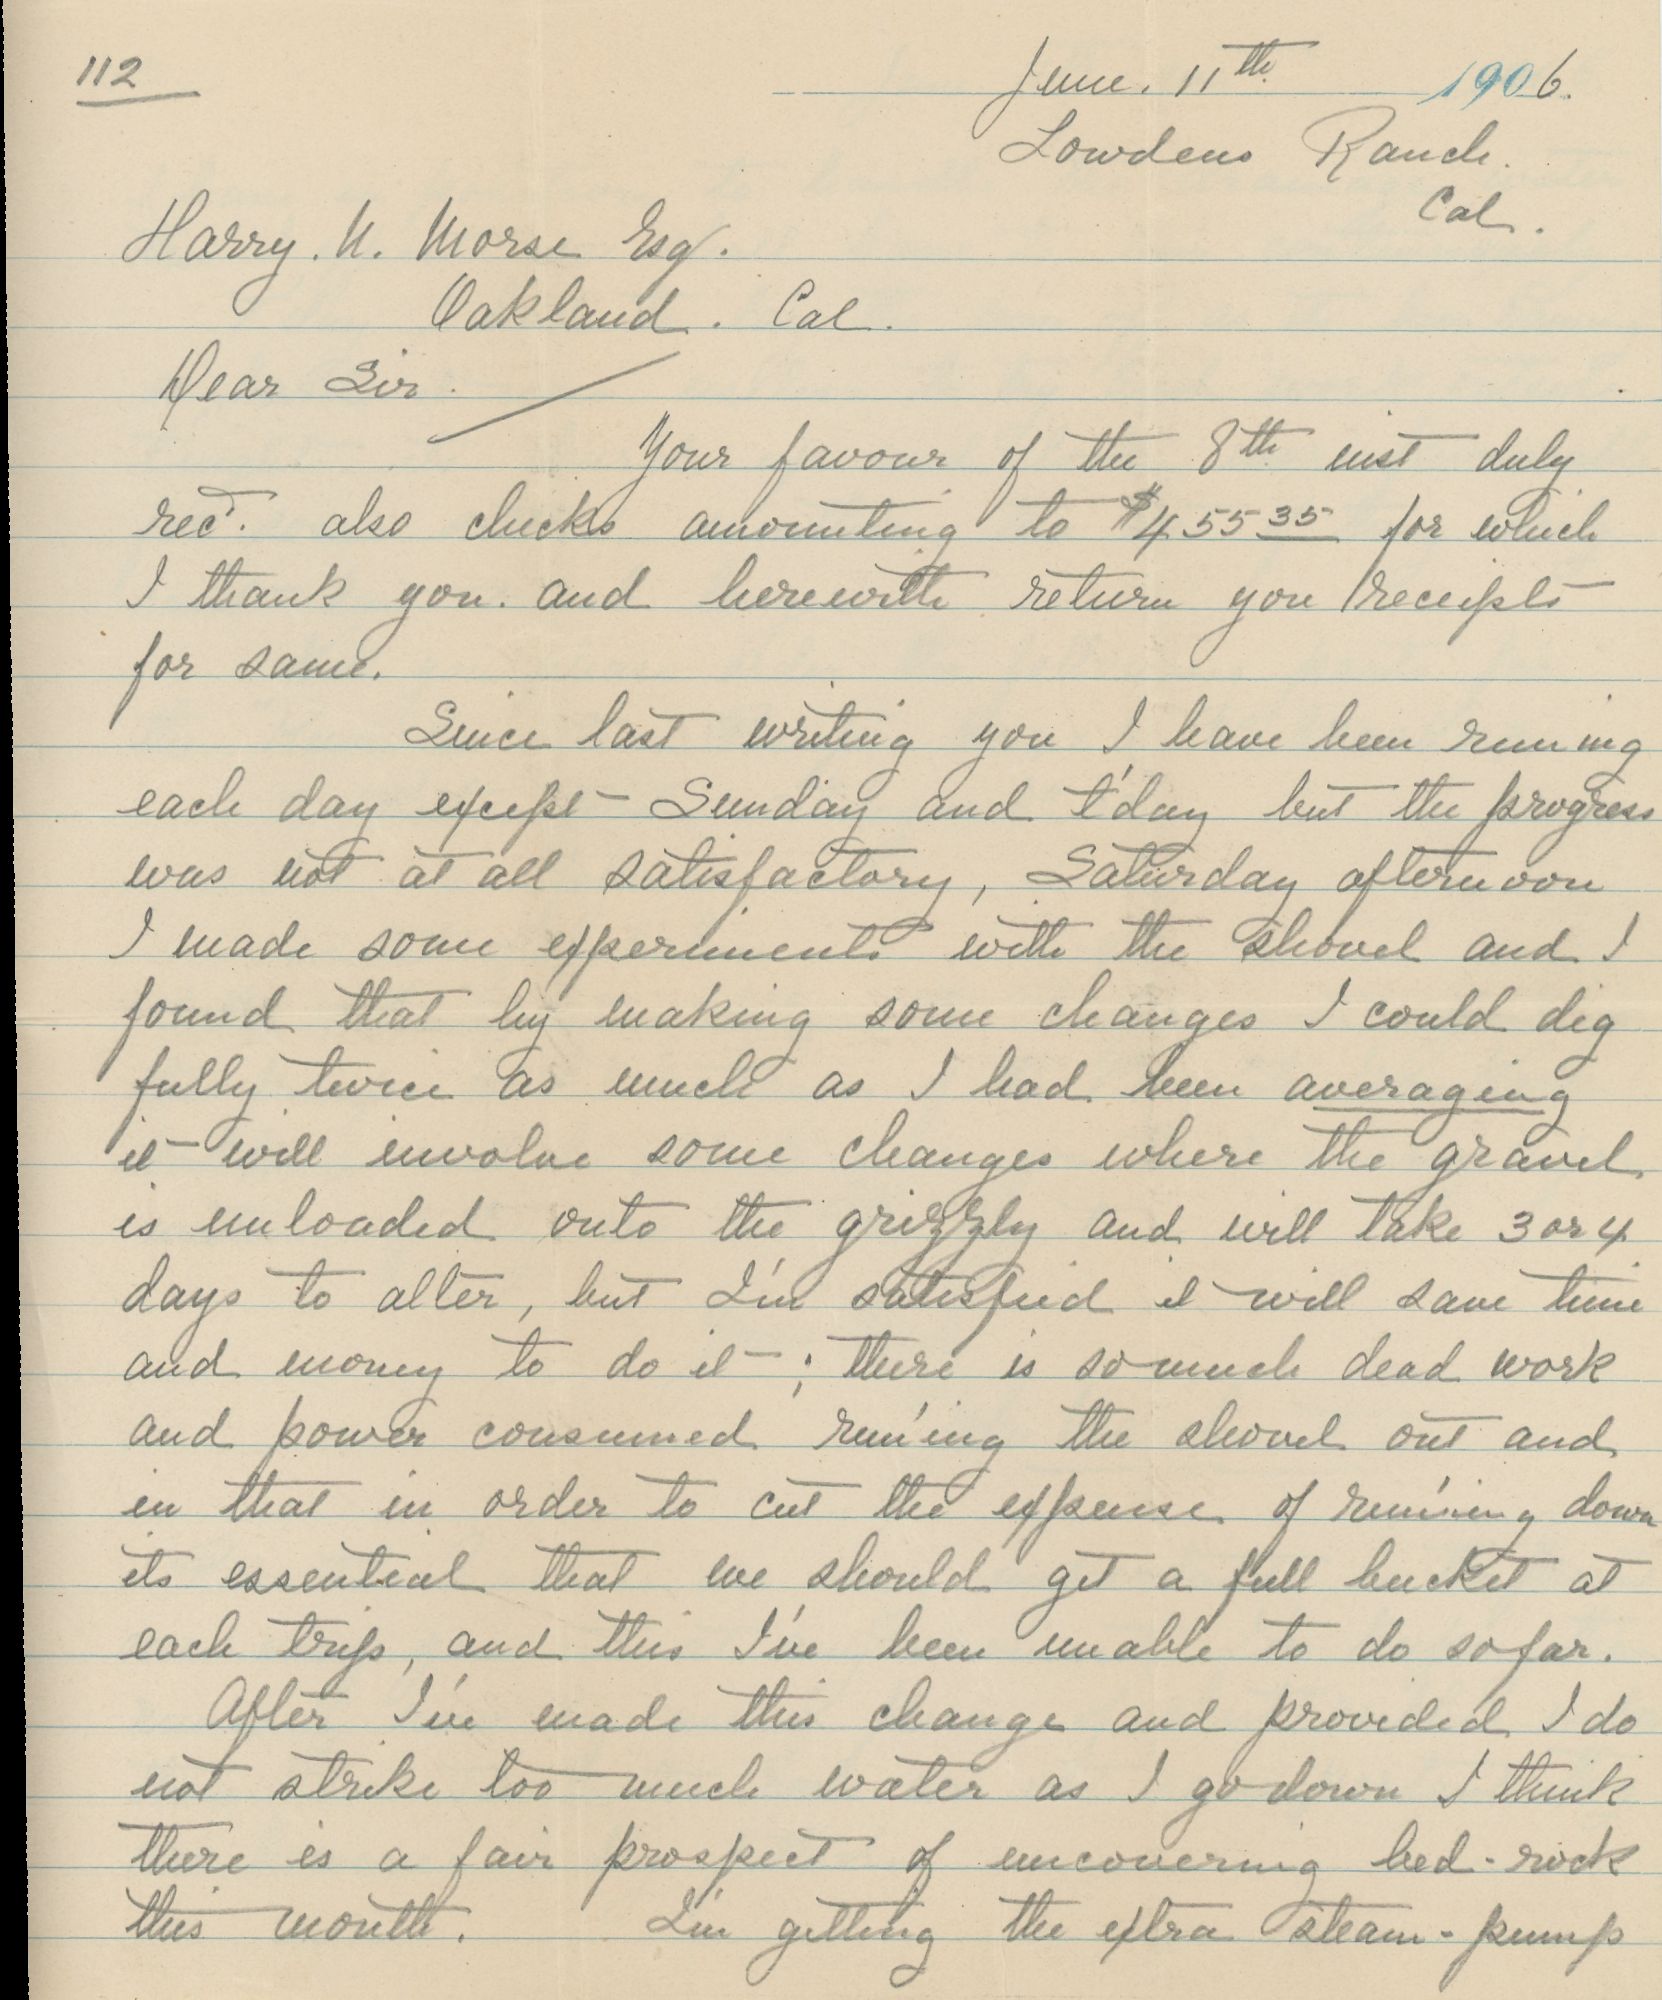 112
June. 11th 1906.
Lowdens Ranch.
Cal.
Harry. N. Morse Esq.
Oakland. Cal.
Dear Sir.
Your favour of the 8th inst duly
rec'd. also checks amounting to $455 35 for which
I thank you. and herewith return you receipts
for same.
Since last writing you I have been runing
each day except Sunday and t'day but the progress
was not at all satisfactory, Saturday afternoon
I made some experiments with the shovel and I
found that by making some changes I could dig
fully twice as much as I had been averaging
it will involve some changes where the gravel
is unloaded onto the grizzly and will take 3 or 4
days to alter, but I'm satisfied it will save time
and money to do it; there is so much dead work
and power consumed run'ing the shovel out and
in that in order to cut the expense of run'ing down
its essential that we should get a full bucket at
each trip, and this I've been unable to do so far.
After I've made this change and provided I do
not strike too much water as I go down I think
there is a fair prospect of uncovering bed-rock
this month. I'm getting the extra steam-pump